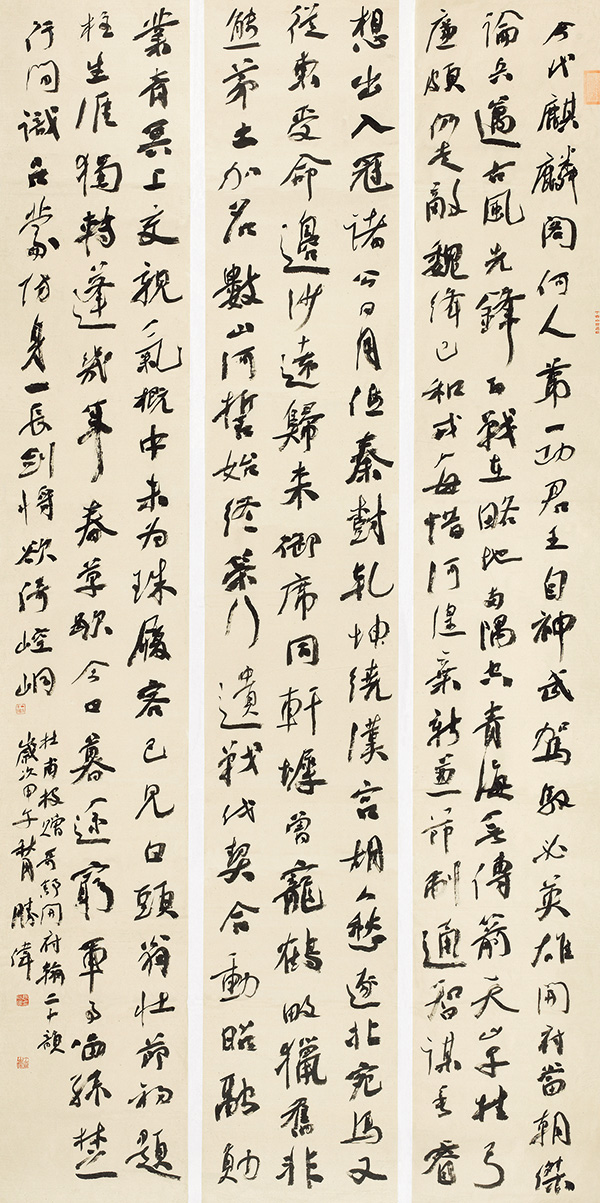 今代麒麟閣何人第一功君王自神武駕馭必英雄開府當朝傑
論兵邁古風先鋒百戰在略地兩隅空青海無傳箭天山早挂弓
廉頗仍走敵魏絳已和戎每惜河湟棄新兼節制通智謀垂睿
想出入冠諸公日月低秦樹乾坤繞漢宮胡人愁逐北宛馬又
從東受命邊沙遠歸來御席同軒墀曾寵鶴畋獵舊非
熊茅土加名數山河誓始終策行遺戰伐契合動昭融勳
業青冥上交親氣概中未為珠履客已見白頭翁壯節初題
柱生涯獨轉蓬幾年春草歇今日暮途窮軍事留孫楚
行間識呂蒙防身一長劍將欲倚崆峒
杜甫投贈哥舒開府翰二十韻
歲次甲午秋月勝偉